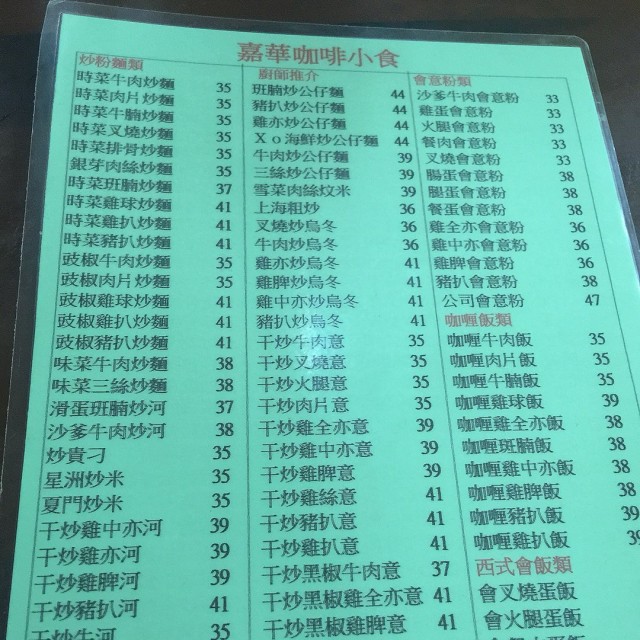 嘉華咖啡小食
炒粉麵類
時菜牛肉炒麵 35
時菜肉片炒麵 35
時菜牛腩炒麵 35
時菜叉燒炒麵 35
時菜排骨炒麵 35
銀芽肉絲炒麵 35
時菜班腩炒麵 37
時菜雞球炒麵 41
時菜雞扒炒麵 41
時菜豬扒炒麵 41
豉椒牛肉炒麵 35
豉椒肉片炒麵 35
豉椒雞球炒麵 41
豉椒雞扒炒麵 41
豉椒豬扒炒麵 41
味菜牛肉炒麵 38
味菜三絲炒麵 38
滑蛋班腩炒河 37
沙爹牛肉炒河 38
炒貴刁 35
星洲炒米 35
夏門炒米 35
干炒雞中亦河 39
干炒雞亦河 39
干炒雞脾河 39
干炒豬扒河 41
干炒牛河 35
廚師推介
班腩炒公仔麵 44
豬扒炒公仔麵 44
雞亦炒公仔麵 44
Xo海鮮炒公仔麵 44
牛肉炒公仔麵 39
三絲炒公仔麵 39
雪菜肉絲炆米 39
上海粗炒 36
叉燒炒烏冬 36
牛肉炒烏冬 36
雞亦炒烏冬 41
雞脾炒烏冬 41
雞中亦炒烏冬 41
豬扒炒烏冬 41
干炒牛肉意 35
干炒叉燒意 35
干炒火腿意 35
干炒肉片意 35
干炒雞全亦意 39
干炒雞中亦意 39
干炒雞脾意 39
干炒雞絲意 41
干炒豬扒意 41
干炒雞扒意 41
干炒黑椒牛肉意 37
干炒黑椒雞全亦意 41
干炒黑椒雞脾意 41
會意粉類
沙爹牛肉會意粉 33
雞蛋會意粉 33
火腿會意粉 33
餐肉會意粉 33
叉燒會意粉 33
腸蛋會意粉 38
腿蛋會意粉 38
餐蛋會意粉 38
雞全亦會意粉 36
雞中亦會意粉 36
雞脾會意粉 36
豬扒會意粉 38
公司會意粉 47
咖喱飯類
咖喱牛肉飯 35
咖喱肉片飯 35
咖喱牛腩飯 35
咖喱雞球飯 39
咖喱雞全亦飯 38
咖喱班腩飯 38
咖喱雞中亦飯 38
咖喱雞脾飯 38
咖喱豬扒飯 39
咖喱雞扒飯 39
西式會飯類
會叉燒蛋飯
會火腿蛋飯